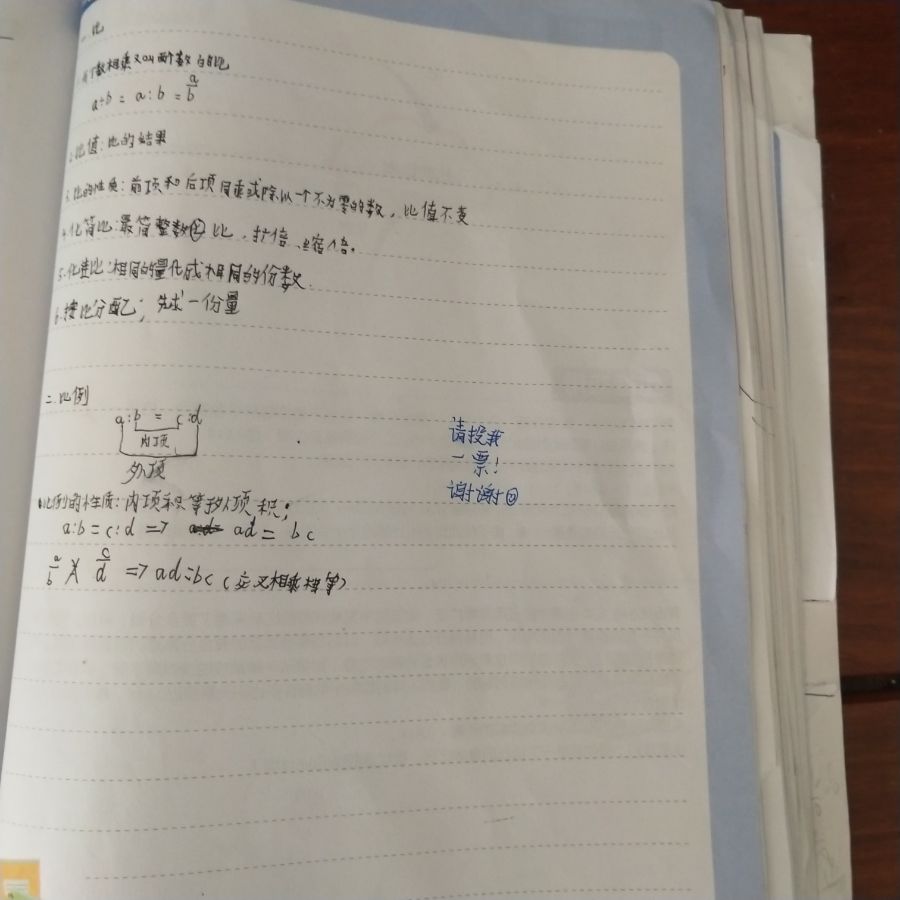 一.比
两个数相乘又叫两个数的比
a÷b = a:b = a/b
2.比值:比的结果
3.比的性质:前项和后项同乘或除以一个不为零的数,比值不变
4.化简比:最简整数比,扩倍、缩倍。
5.化连比:相同的量化成相同的份数.
6.按比分配;先求一份量
二.比例
a:b = c:d
内项
外项
比例的性质:内项积等于外项积;
a:b=c:d => ad= bc
a/b X c/d => ad=bc(交叉相乘相等)
请投我
一票!
谢谢